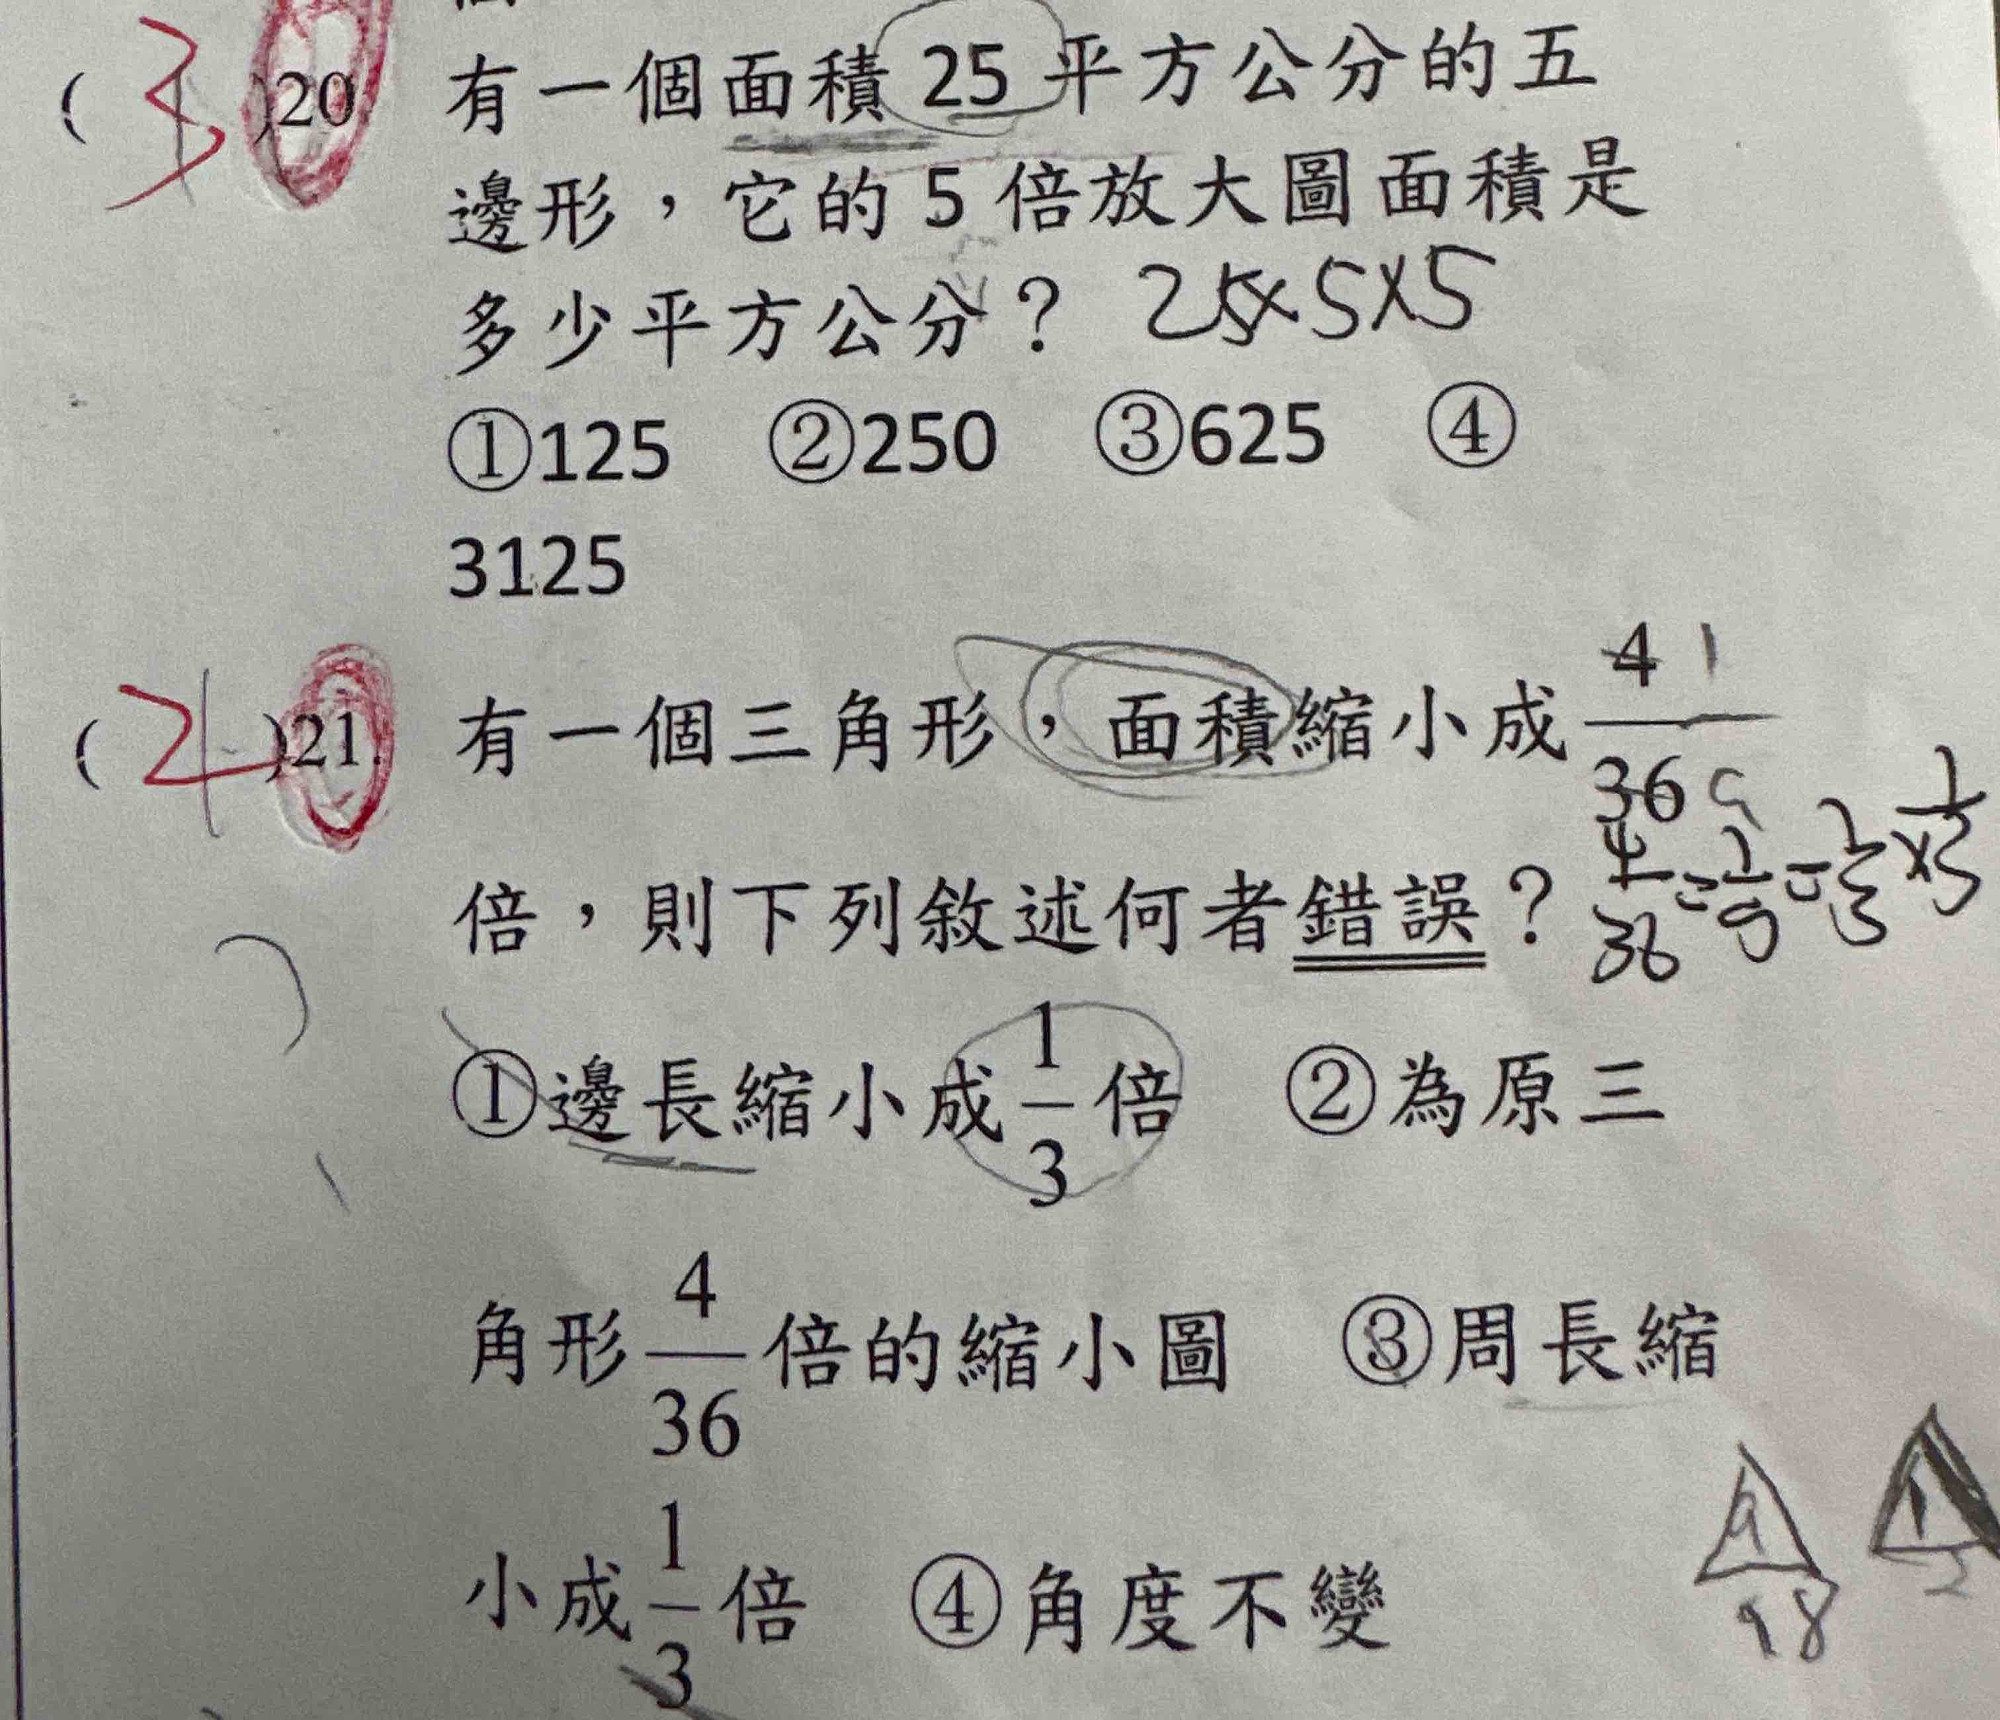 ( 3 )20. 有一個面積 25 平方公分的五
邊形，它的 5 倍放大圖面積是
多少平方公分？ 25×5×5
①125 ②250 ③625 ④
3125
( 2 )21. 有一個三角形，面積縮小成 4/36 1/9
倍，則下列敘述何者錯誤？ 4/36=1/9=1/3×1/3
①邊長縮小成 1/3 倍 ②為原三
角形 4/36 倍的縮小圖 ③周長縮
小成 1/3 倍 ④角度不變
9 1
18 2